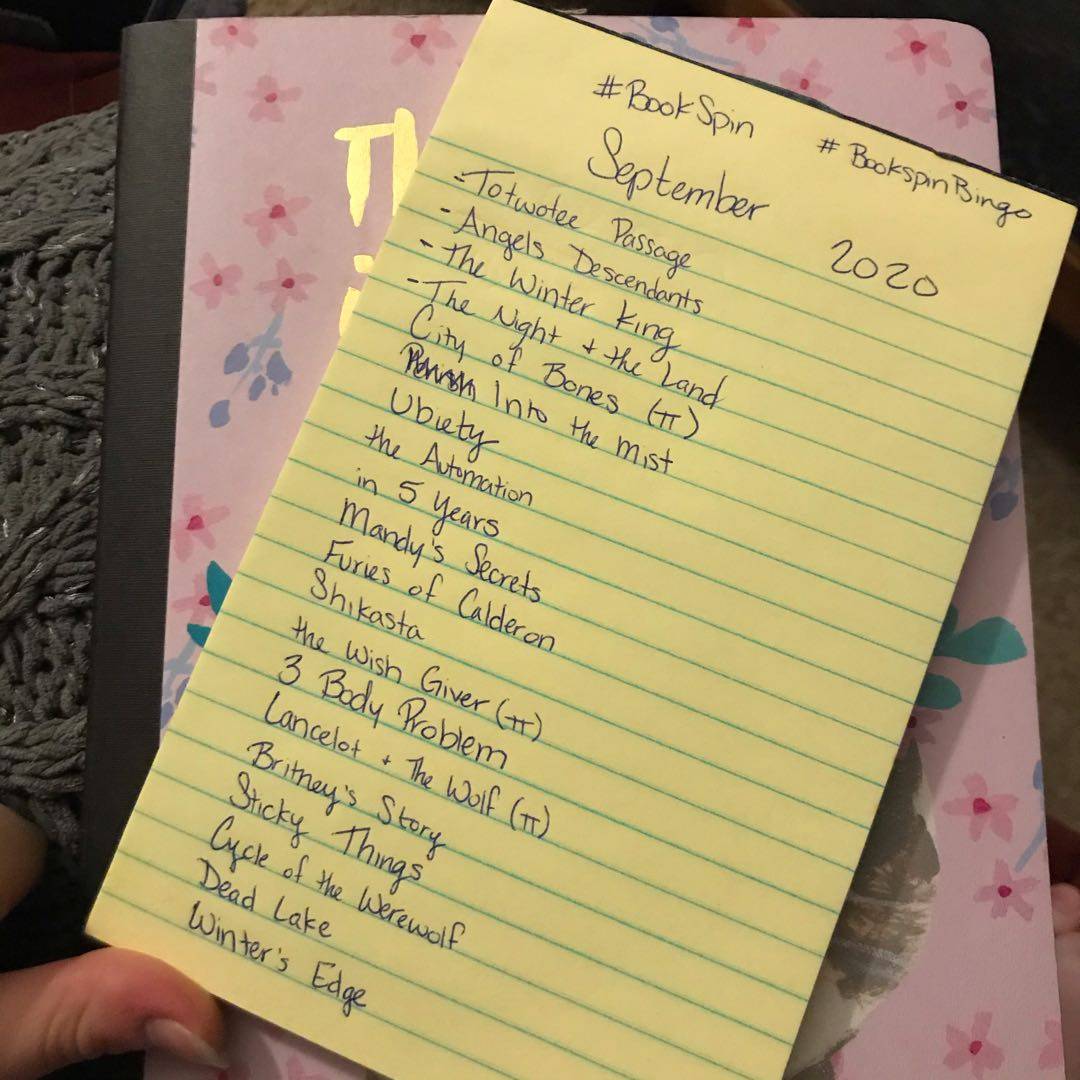 #BookSpin
#BookspinBingo
September 2020
-Totwotee Passage
-Angels Descendants
-the Winter King
-The Night + the Land
City of Bones (π)
Into the mist
Ubiety
the Automation
in 5 years
Mandy's Secrets
Furies of Calderon
Shikasta
the Wish Giver (π)
3 Body Problem
Lancelot + The Wolf (π)
Britney's Story
Sticky Things
Cycle of the Werewolf
Dead Lake
Winter's Edge